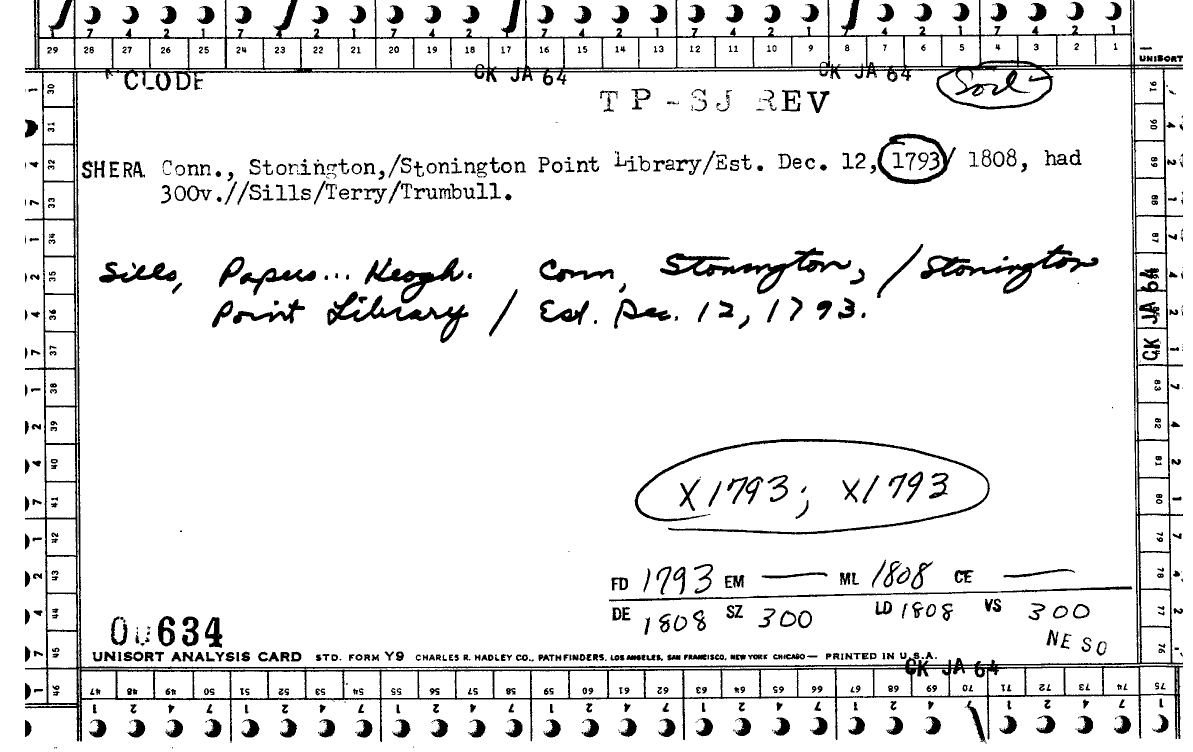 7 4 2 1 7 4 2 1 7 4 2 1 7 4 2 1 7 4 2 1 7 4 2 1 7 4 2 1
29 28 27 26 25 24 23 22 21 20 19 18 17 16 15 14 13 12 11 10 9 8 7 6 5 4 3 2 1
UNISORT
CLODE CK JA 64 CK JA 64 Soc
TP-SJ REV
SHERA Conn., Stonington,/Stonington Point Library/Est. Dec. 12, 1793/ 1808, had
300v.//Sills/Terry/Trumbull.
Sills, Papers... Keogh. Conn, Stonington, / Stonington
Point Library / Est. Dec. 12, 1793.
CK JA 64
X1793; X1793
FD 1793 EM — ML 1808 CE —
DE 1808 SZ 300 LD 1808 VS 300
NE SO
00634
UNISORT ANALYSIS CARD STD. FORM Y9 CHARLES R. HADLEY CO., PATHFINDERS, LOS ANGELES, SAN FRANCISCO, NEW YORK CHICAGO — PRINTED IN U.S.A.
CK JA 64
30 31 32 33 34 35 36 37 38 39 40 41 42 43 44 45 46
47 48 49 50 51 52 53 54 55 56 57 58 59 60 61 62 63 64 65 66 67 68 69 70 71 72 73 74 75
76 77 78 79 80 81 82 83 87 88 89 90 91